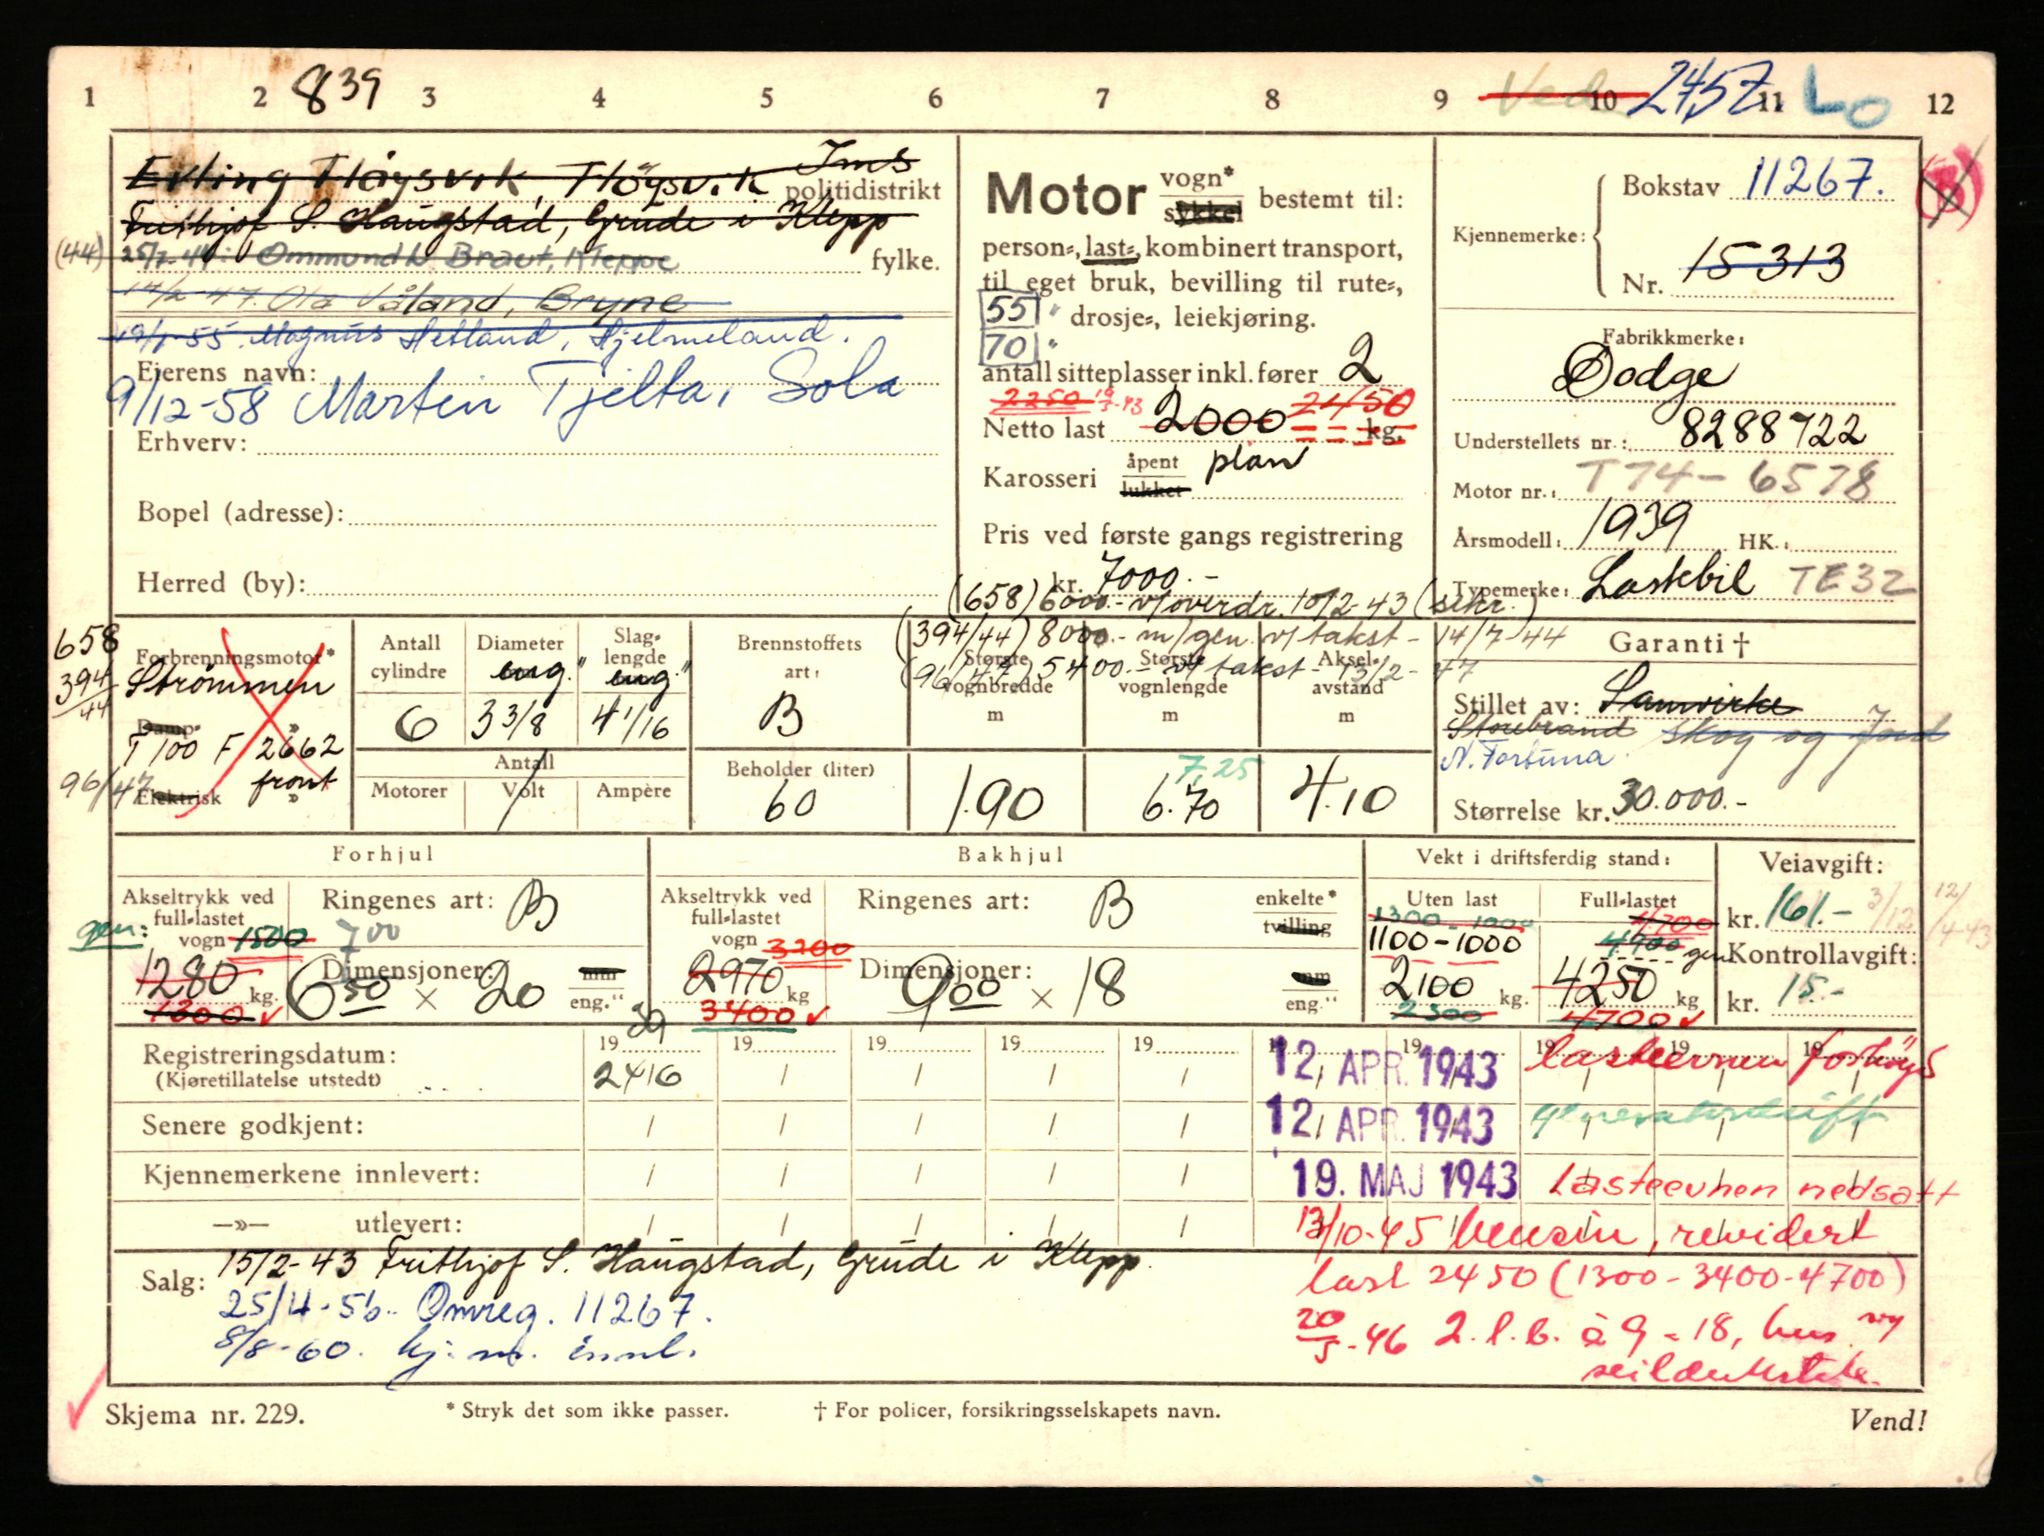 1 2 839 3 4 5 6 7 8 9 Ved 10 2457 11 Lo 12
Erling Fløysvik, Fløysvik Ims
politidistrikt
Frithjof S. Haugstad, Grude i Klepp
(44) 25/7-44: Ommund L. Braut, Kleppe
fylke.
14/2-47. Ola Våland, Bryne
19/1-55. Magnus Hetland, Hjelmeland.
Ejerens navn:
9/12-58 Martin Tjelta, Sola
Erhverv:
Bopel (adresse):
Herred (by):
Motor vogn* sykkel bestemt til:
person-, last-, kombinert transport,
til eget bruk, bevilling til rute-,
55" drosje-, leiekjøring.
70"
antall sitteplasser inkl. fører 2
2250 2450
Netto last 2000 kg.
Karosseri åpent lukket plan
Pris ved første gangs registrering
kr. 7000.-
(658) 6000.- v/overdr. 10/2-43 (sekr.)
(394/44) 8000.- m/gen. v/takst - 14/7-44
(96/47) 5400.- v/takst - 13/2-47
Kjennemerke: Bokstav 11267.
(B)
Nr. 15313
Fabrikkmerke:
Dodge
Understellets nr.: 8288722
Motor nr.: T74-6578
Årsmodell: 1939 HK.:
Typemerke: Lastebil TE32
658
394/44
96/47
Forbrenningsmotor*
Strömmen
Damp- »
T 100 F 2662
front
Elektrisk »
Antall cylindre
6
Diameter eng."
3 3/8
Slaglengde eng."
4 1/16
Antall
Motorer Volt Ampère
Brennstoffets art:
B
Beholder (liter)
60
Største vognbredde m
1.90
Største vognlengde m
7,25
6.70
Aksel-avstand m
4.10
Garanti †
Stillet av: Samvirke
Storebrand Skog og Jord
N. Fortuna.
Størrelse kr. 30.000.-
Forhjul
Akseltrykk ved full-lastet vogn 1500
gen:
1280 kg.
1300
Ringenes art: B
700
Dimensjoner: 650 × 20 mm eng."
Bakhjul
Akseltrykk ved full-lastet vogn 3200
2970 kg
3400
Ringenes art: B enkelte* tvilling
Dimensjoner: 900 × 18 mm eng."
Vekt i driftsferdig stand:
Uten last
1300-1000
1100-1000
2100 kg.
2300
Full-lastet
4700
4900 gen
4250 kg
4700
Veiavgift:
kr. 161.-
Kontrollavgift:
kr. 15.-
Registreringsdatum: 1939 19 19 19 19 19 19 19 19 19
(Kjøretillatelse utstedt) 24/6 12. APR. 1943 lasteevnen forhøyes
Senere godkjent: 12. APR. 1943 generatordrift
Kjennemerkene innlevert: 19. MAJ 1943 Lasteevnen nedsatt
—»— utlevert: 13/10-45 bensin, revidert
last 2450 (1300-3400-4700)
20/5-46 2. l. b. à 9-18, hus av
seilduk
Salg: 15/2-43 Frithjof S. Haugstad, Grude i Klepp.
25/4-56. Omreg. 11267.
8/8-60. kj.m. innl.
Skjema nr. 229. * Stryk det som ikke passer. † For policer, forsikringsselskapets navn. Vend!